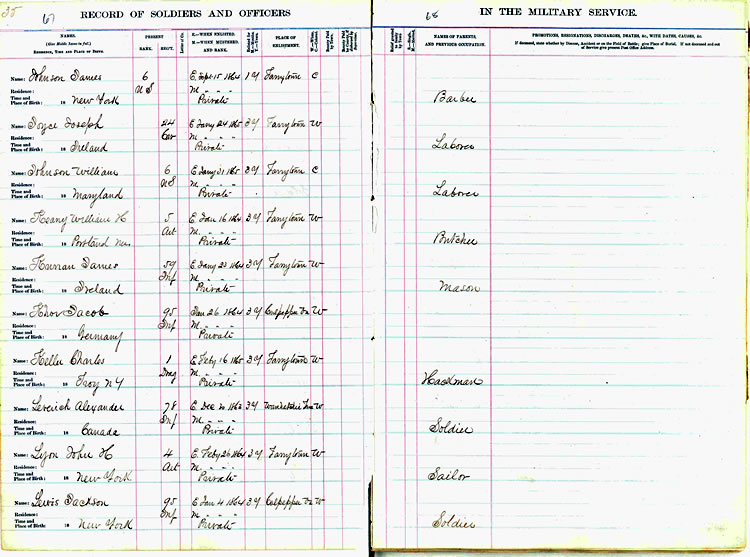 25 67 RECORD OF SOLDIERS AND OFFICERS
68 IN THE MILITARY SERVICE.
NAMES. (Give Middle Name in full.) RESIDENCE, TIME AND PLACE OF BIRTH.
PRESENT RANK. REGT.
E.—WHEN ENLISTED. M.—WHEN MUSTERED, AND RANK.
PLACE OF ENLISTMENT.
NAMES OF PARENTS, AND PREVIOUS OCCUPATION.
PROMOTIONS, RESIGNATIONS, DISCHARGES, DEATHS, &c., WITH DATES, CAUSES, &c.
If deceased, state whether by Disease, Accident or on the Field of Battle; give Place of Burial. If not deceased and out of Service give present Post Office Address.
Name: Johnson James 6 E Sept 15 1864 1 y Tarrytown C
Residence: U S M " " "
Time and Place of Birth: 18 New York Private Barber
Name: Joyce Joseph 24 E Jany 24 1865 3 y Tarrytown W
Residence: Cav M " " "
Time and Place of Birth: 18 Ireland Private Laborer
Name: Johnson William 6 E Jany 31 1865 3 y Tarrytown C
Residence: U S M " " "
Time and Place of Birth: 18 Maryland Private Laborer
Name: Keany William H 5 E Jan 16 1864 3 y Tarrytown W
Residence: Art M " " "
Time and Place of Birth: 18 Portland Private Butcher
Name: James 59 E Jany 1864 3 y Tarrytown W
Residence: Inf M " " "
Time and Place of Birth: 18 Ireland Private Mason
Name: Jacob 95 Jan 26 1864 3 y Culpepper Va W
Residence: Inf M " " "
Time and Place of Birth: 18 Germany Private
Name: Keller Charles 1 E Feby 16 1865 3 y Tarrytown W
Residence: Drag M " " "
Time and Place of Birth: 18 Troy N Y Private Hackman
Name: Leverich Alexander 78 E Dec 1863 3 y W
Residence: Inf M " " "
Time and Place of Birth: 18 Canada Private Soldier
Name: Lyon John H 4 E Feby 26 1864 3 y Tarrytown W
Residence: Art M " " "
Time and Place of Birth: 18 New York Private Sailor
Name: Lewis Jackson 95 E Jan 4 1864 3 y Culpepper Va W
Residence: Inf M " " "
Time and Place of Birth: 18 New York Private Soldier